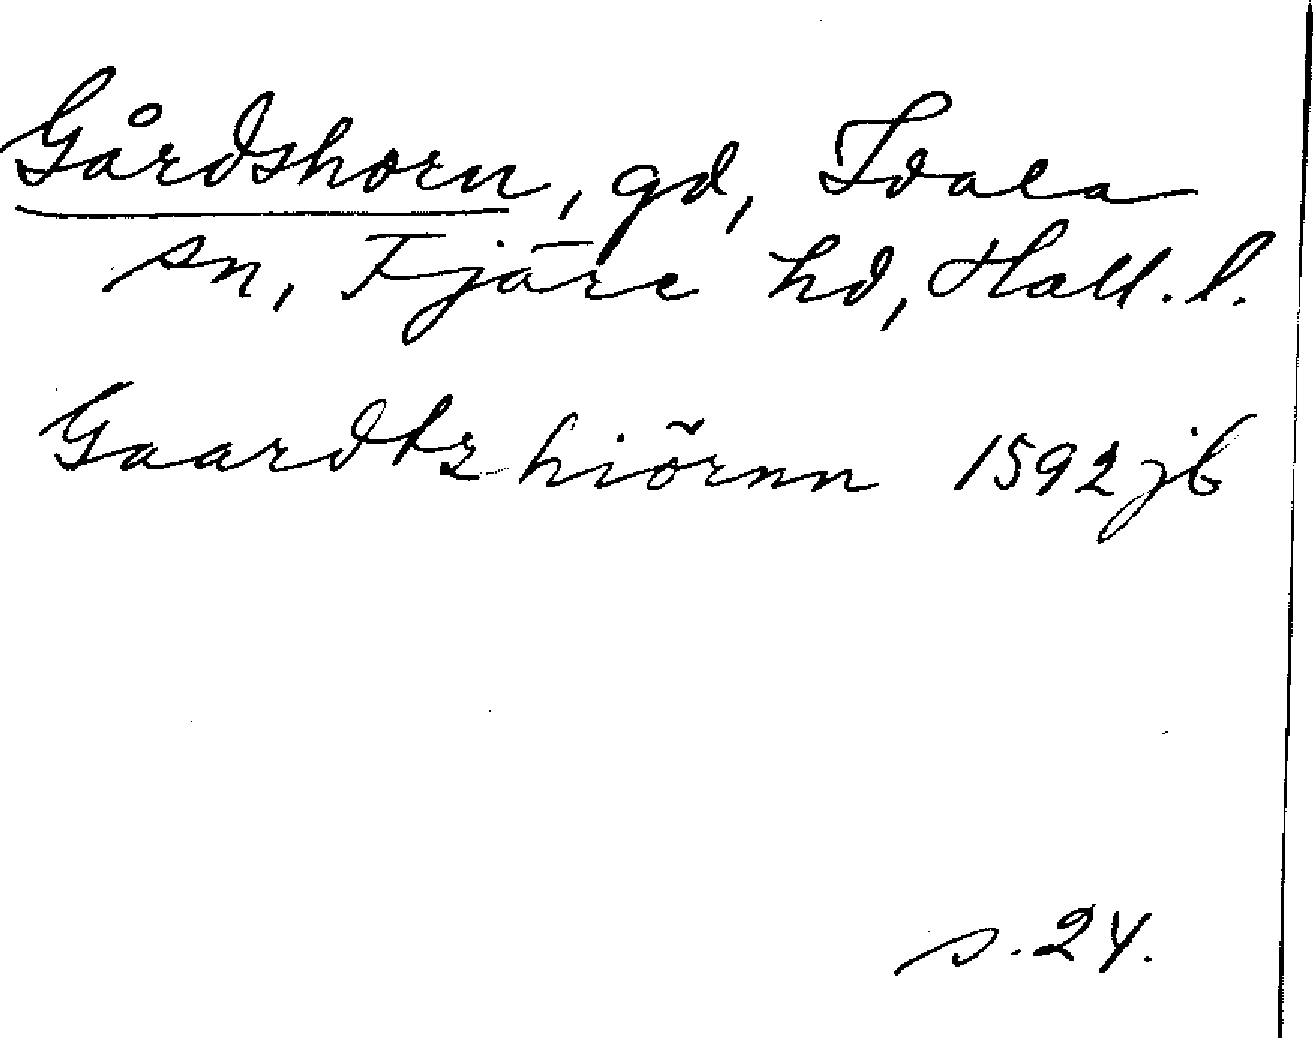 Gårdshorn, gd, Idala
sn, Fjäre hd, Hall. l.
Gaardtz hiörnn 1592 jb
s. 24.